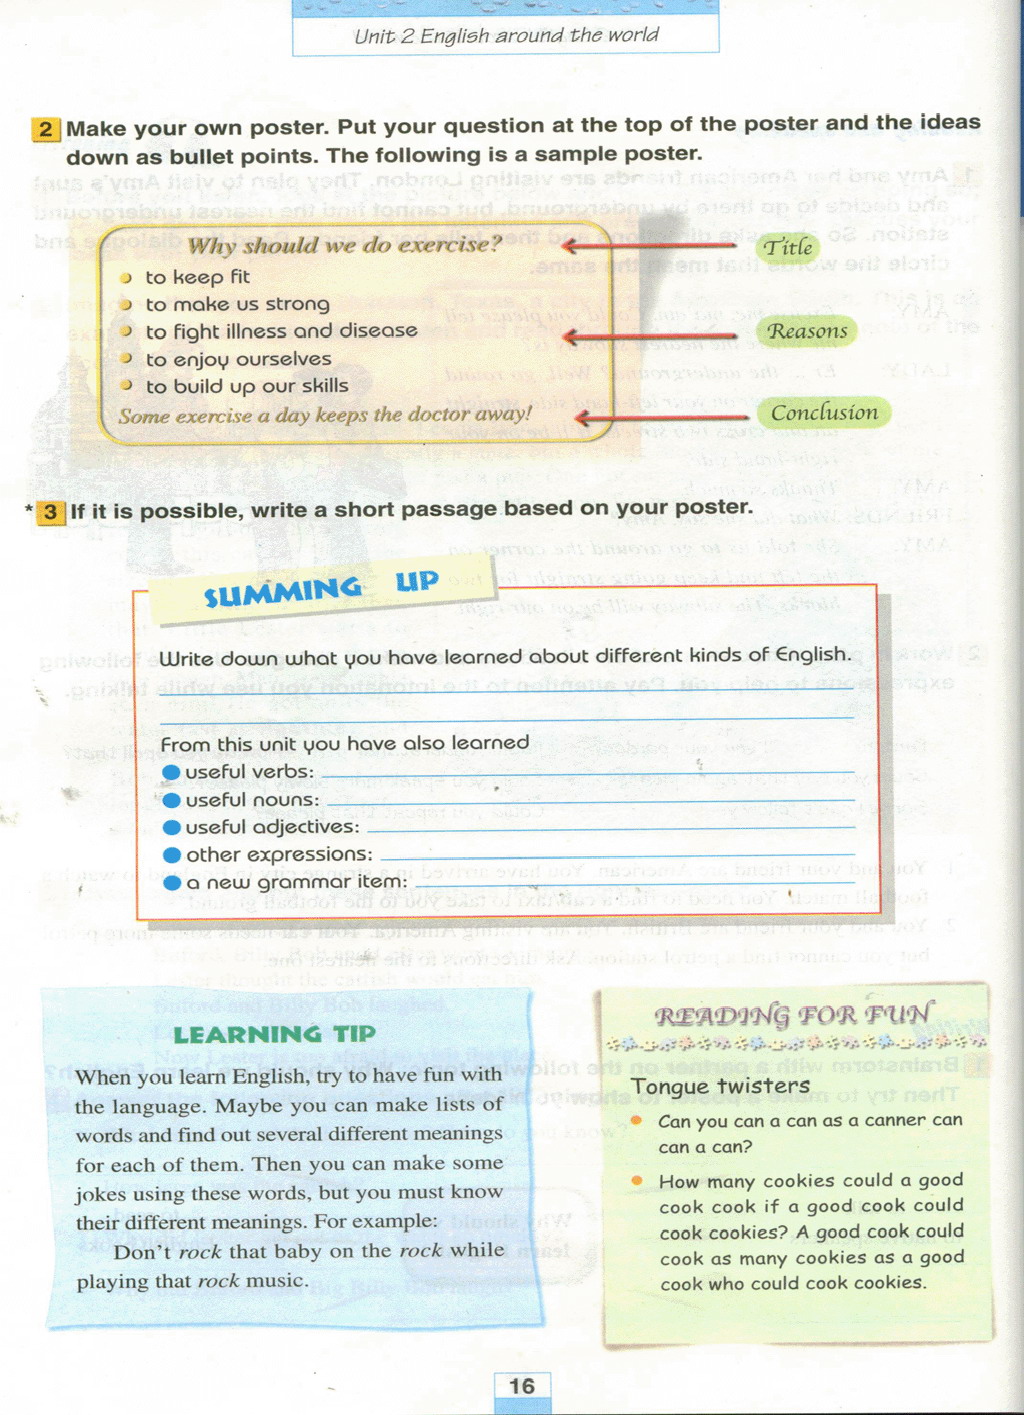 Unit 2 English around the world
2 Make your own poster. Put your question at the top of the poster and the ideas
down as bullet points. The following is a sample poster.
Why should we do exercise?
Title
to keep fit
to make us strong
to fight illness and disease
Reasons
to enjoy ourselves
to build up our skills
Some exercise a day keeps the doctor away!
Conclusion
* 3 If it is possible, write a short passage based on your poster.
SUMMING UP
Write down what you have learned about different kinds of English.
From this unit you have also learned
● useful verbs:
● useful nouns:
● useful adjectives:
● other expressions:
● a new grammar item:
LEARNING TIP
When you learn English, try to have fun with
the language. Maybe you can make lists of
words and find out several different meanings
for each of them. Then you can make some
jokes using these words, but you must know
their different meanings. For example:
Don't rock that baby on the rock while
playing that rock music.
READING FOR FUN
Tongue twisters
• Can you can a can as a canner can
can a can?
• How many cookies could a good
cook cook if a good cook could
cook cookies? A good cook could
cook as many cookies as a good
cook who could cook cookies.
16